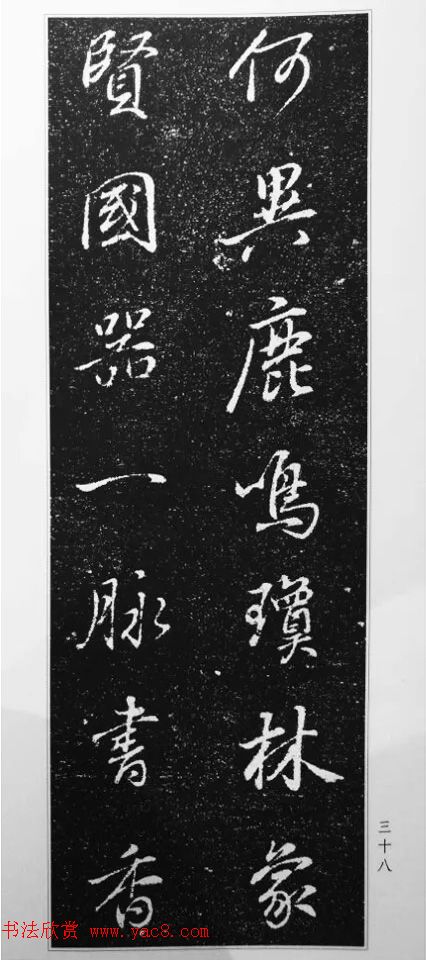 何異鹿鳴瓊林家
賢國器一脉書香
三十八
书法欣赏 www.yac8.com